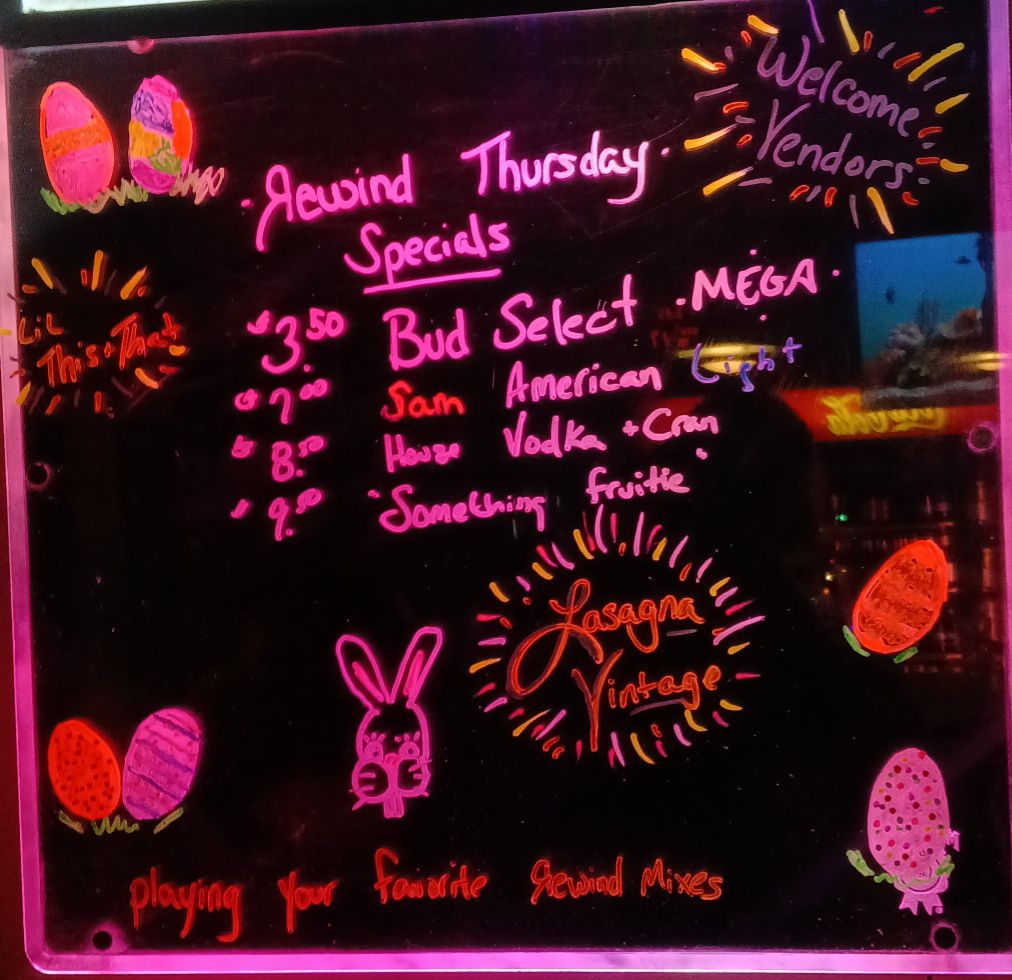 Welcome
Vendors
·Rewind Thursday·
Specials
$3.50 Bud Select ·MEGA·
$7.00 Sam American Light
$8.50 House Vodka + Cran
$9.50 "Something fruitie"
Lil
This + That
Lasagna
Vintage
playing your favorite Rewind Mixes